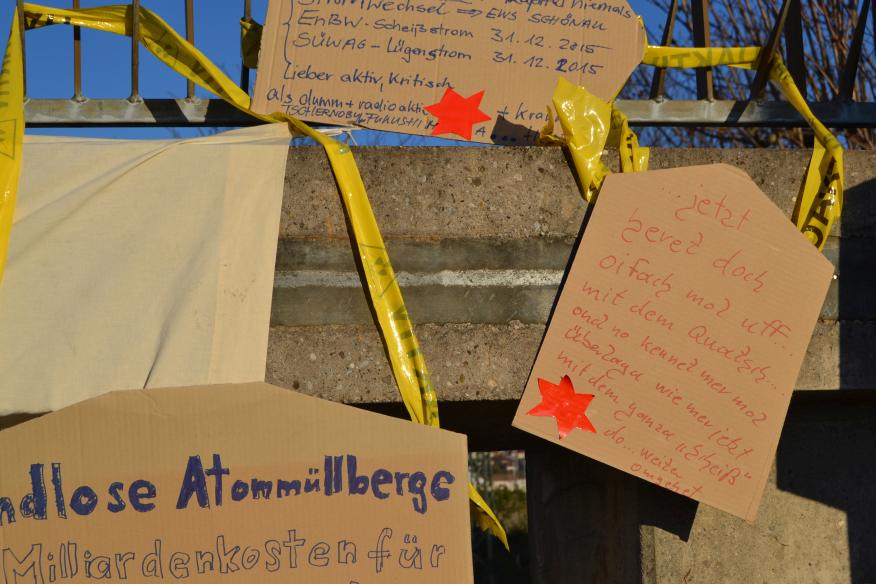 Stromwechsel ⇒ EWS SCHÖNAU
EnBW-Scheißstrom 31.12.2015
SÜWAG-Lügenstrom 31.12.2015
Lieber aktiv, kritisch
als dumm + radioakti + Kra
TSCHERNOBY, FUKUSHI A...
jetzt
heret doch
oifach mol uff
mit dem Quatsch...
ond no kennet mer mol
überlaga wie mer jetzt
mit dem ganza "Scheiß"
do... weiter
omgehet
ndlose Atommüllberge
Milliardenkosten für